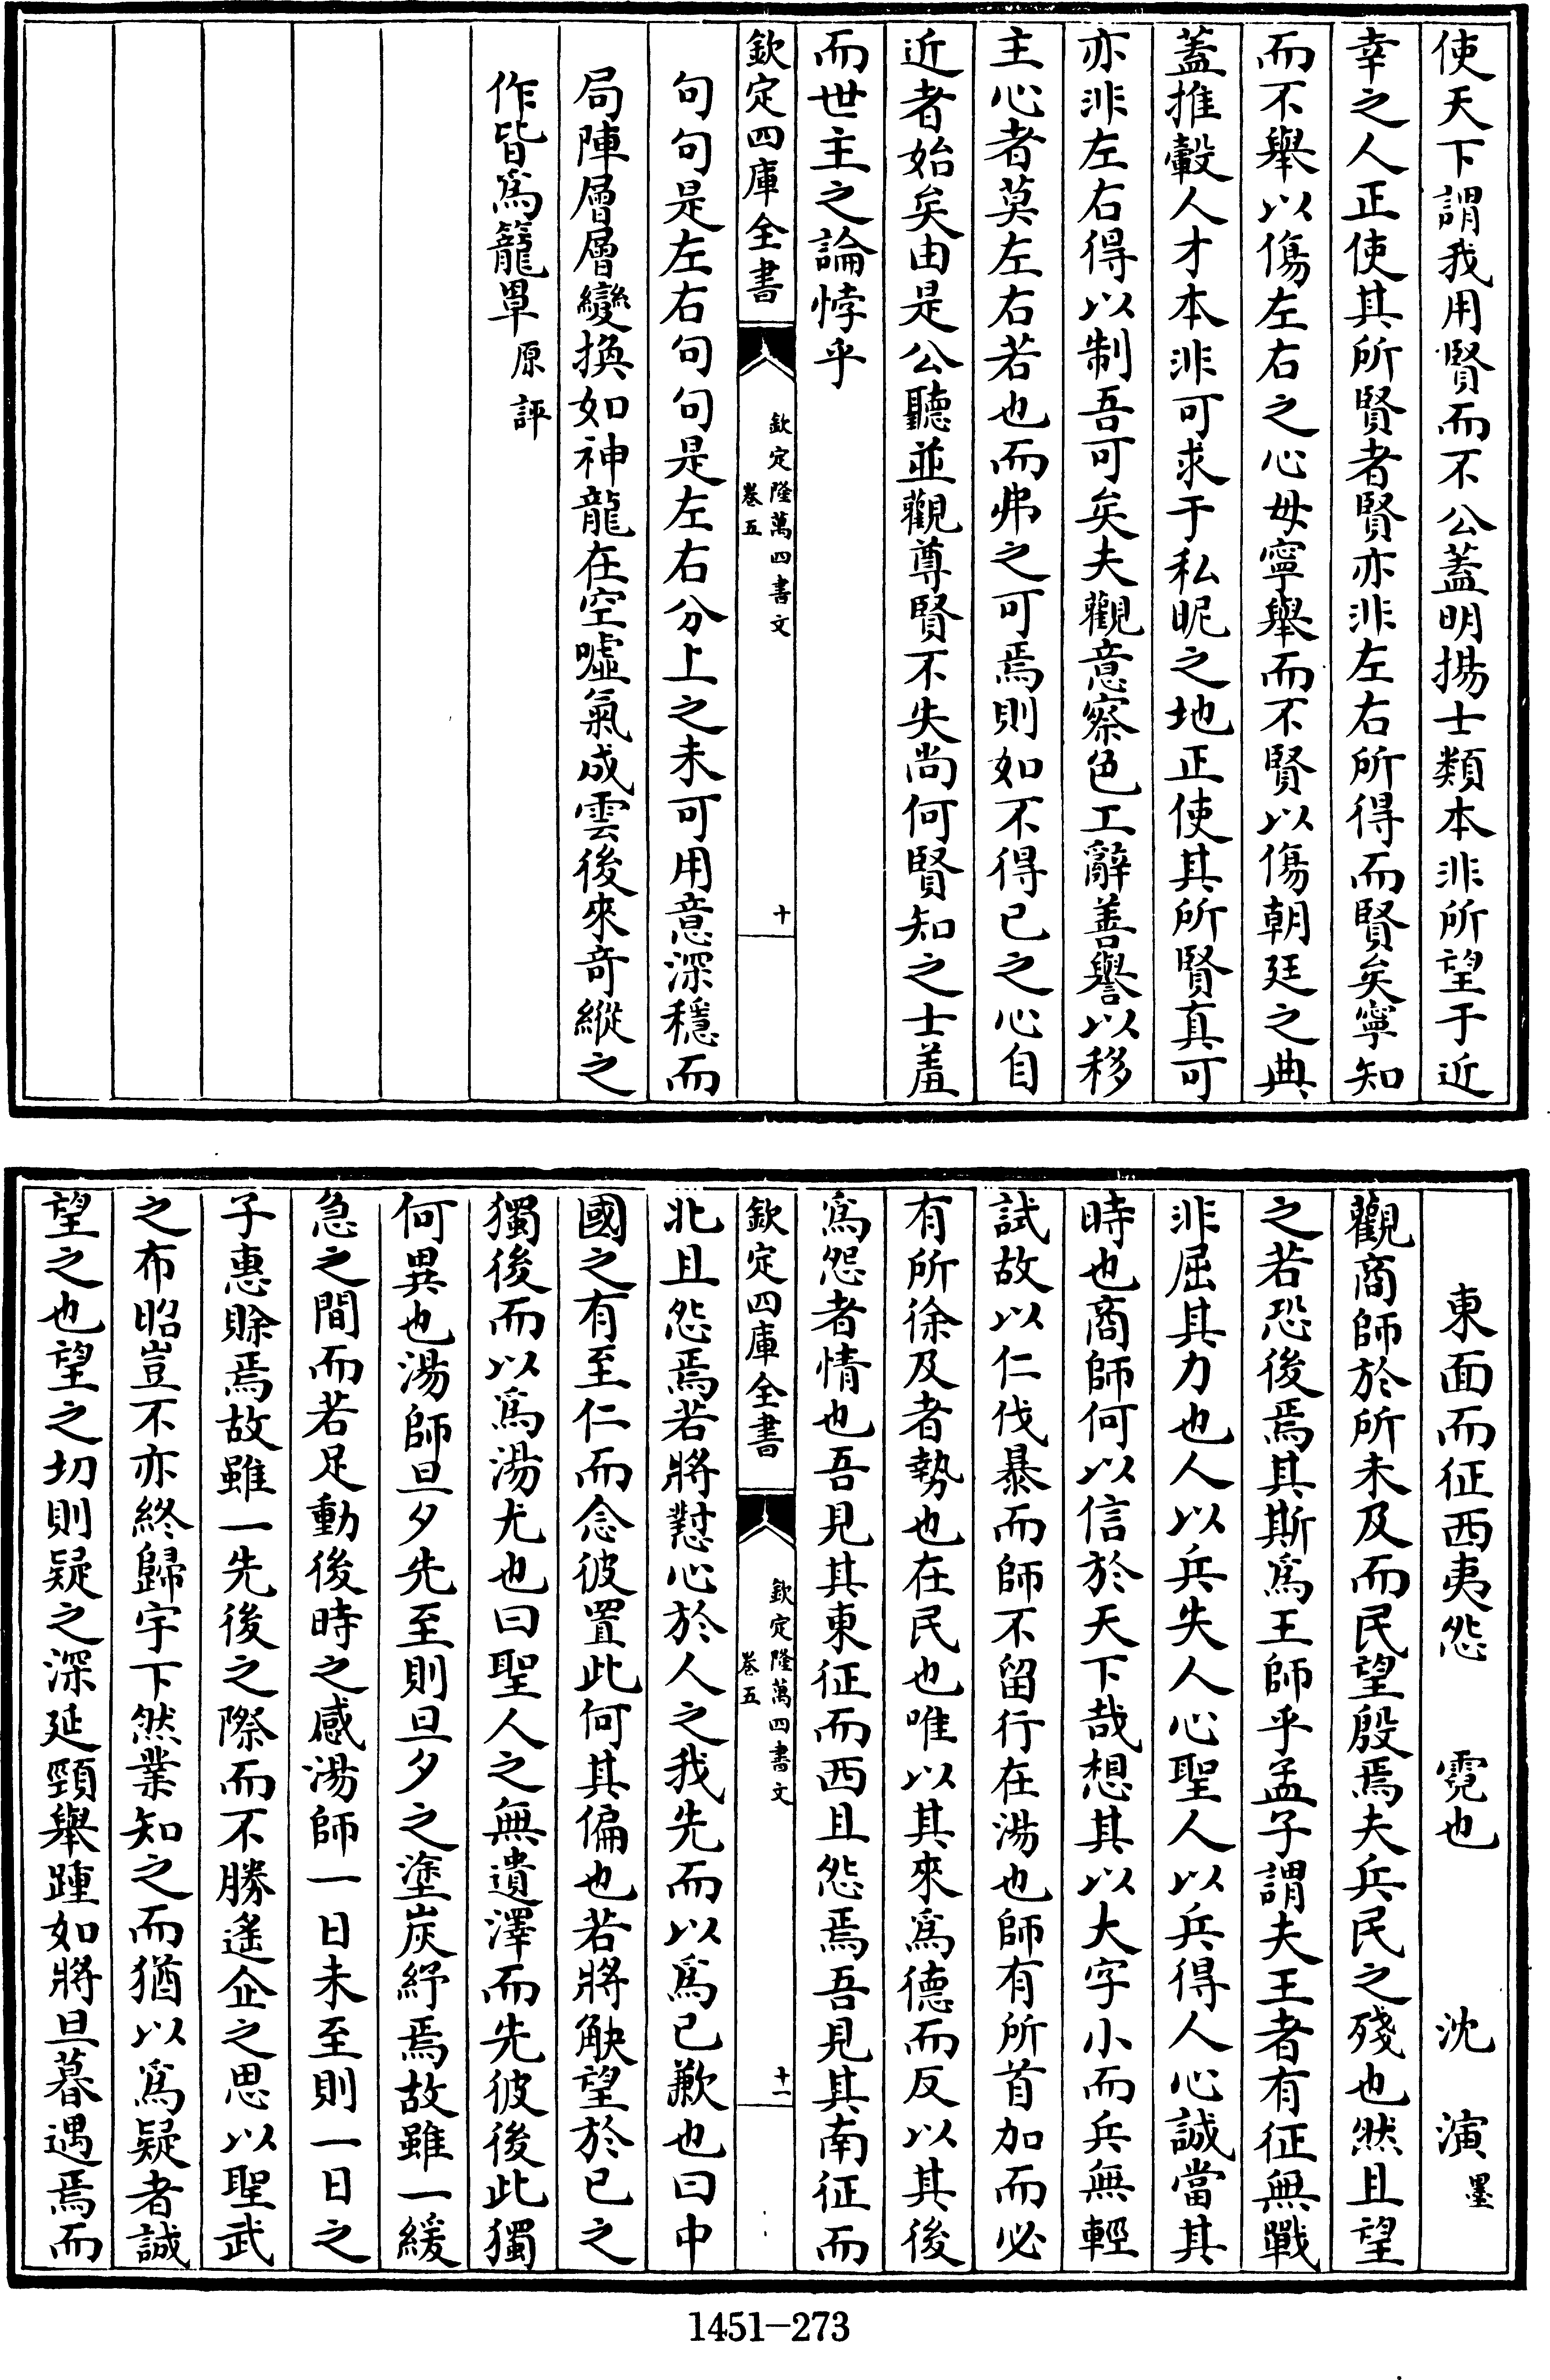 使天下謂我用賢而不公蓋明揚士類本非所望于近
幸之人正使其所賢者賢亦非左右所得而賢矣寧知
而不舉以傷左右之心毋寧舉而不賢以傷朝廷之典
蓋推轂人才本非可求于私昵之地正使其所賢真可
亦非左右得以制吾可矣夫觀意察色工辭善譽以移
主心者莫左右若也而弗之可焉則如不得已之心自
近者始矣由是公聽並觀尊賢不失尚何賢知之士羞
而世主之論悖乎
欽定四庫全書
欽定隆萬四書文
卷五
十
句句是左右句句是左右分上之未可用意深穩而
局陣層層變換如神龍在空噓氣成雲後來奇縱之
作皆為籠罩原評
東面而征西夷怨 霓也 沈演墨
觀商師於所未及而民望殷焉夫兵民之殘也然且望
之若恐後焉其斯為王師乎孟子謂夫王者有征無戰
非屈其力也人以兵失人心聖人以兵得人心誠當其
時也商師何以信於天下哉想其以大字小而兵無輕
試故以仁伐暴而師不留行在湯也師有所首加而必
有所徐及者勢也在民也唯以其來為德而反以其後
為怨者情也吾見其東征而西且怨焉吾見其南征而
欽定四庫全書
欽定隆萬四書文
卷五
十一
北且怨焉若將懟心於人之我先而以為已歉也曰中
國之有至仁而念彼置此何其偏也若將觖望於已之
獨後而以為湯尤也曰聖人之無遺澤而先彼後此獨
何異也湯師旦夕先至則旦夕之塗炭紓焉故雖一緩
急之間而若足動後時之感湯師一日未至則一日之
子惠賒焉故雖一先後之際而不勝遙企之思以聖武
之布昭豈不亦終歸宇下然業知之而猶以為疑者誠
望之也望之切則疑之深延頸舉踵如將旦暮遇焉而
1451-273